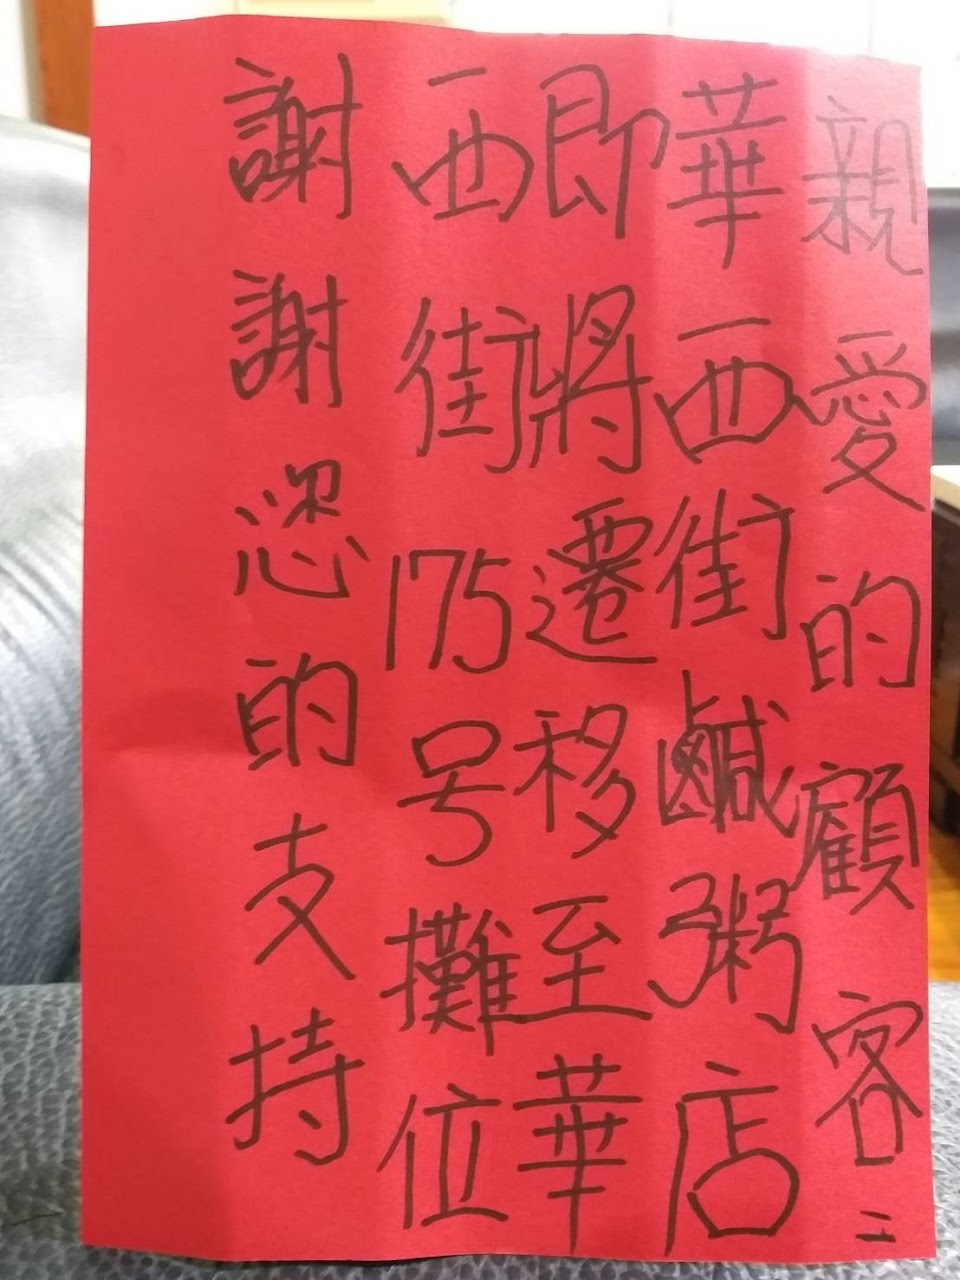 親愛的顧客：
華西街鹹粥店
即將遷移至華
西街175号攤位
謝謝您的支持